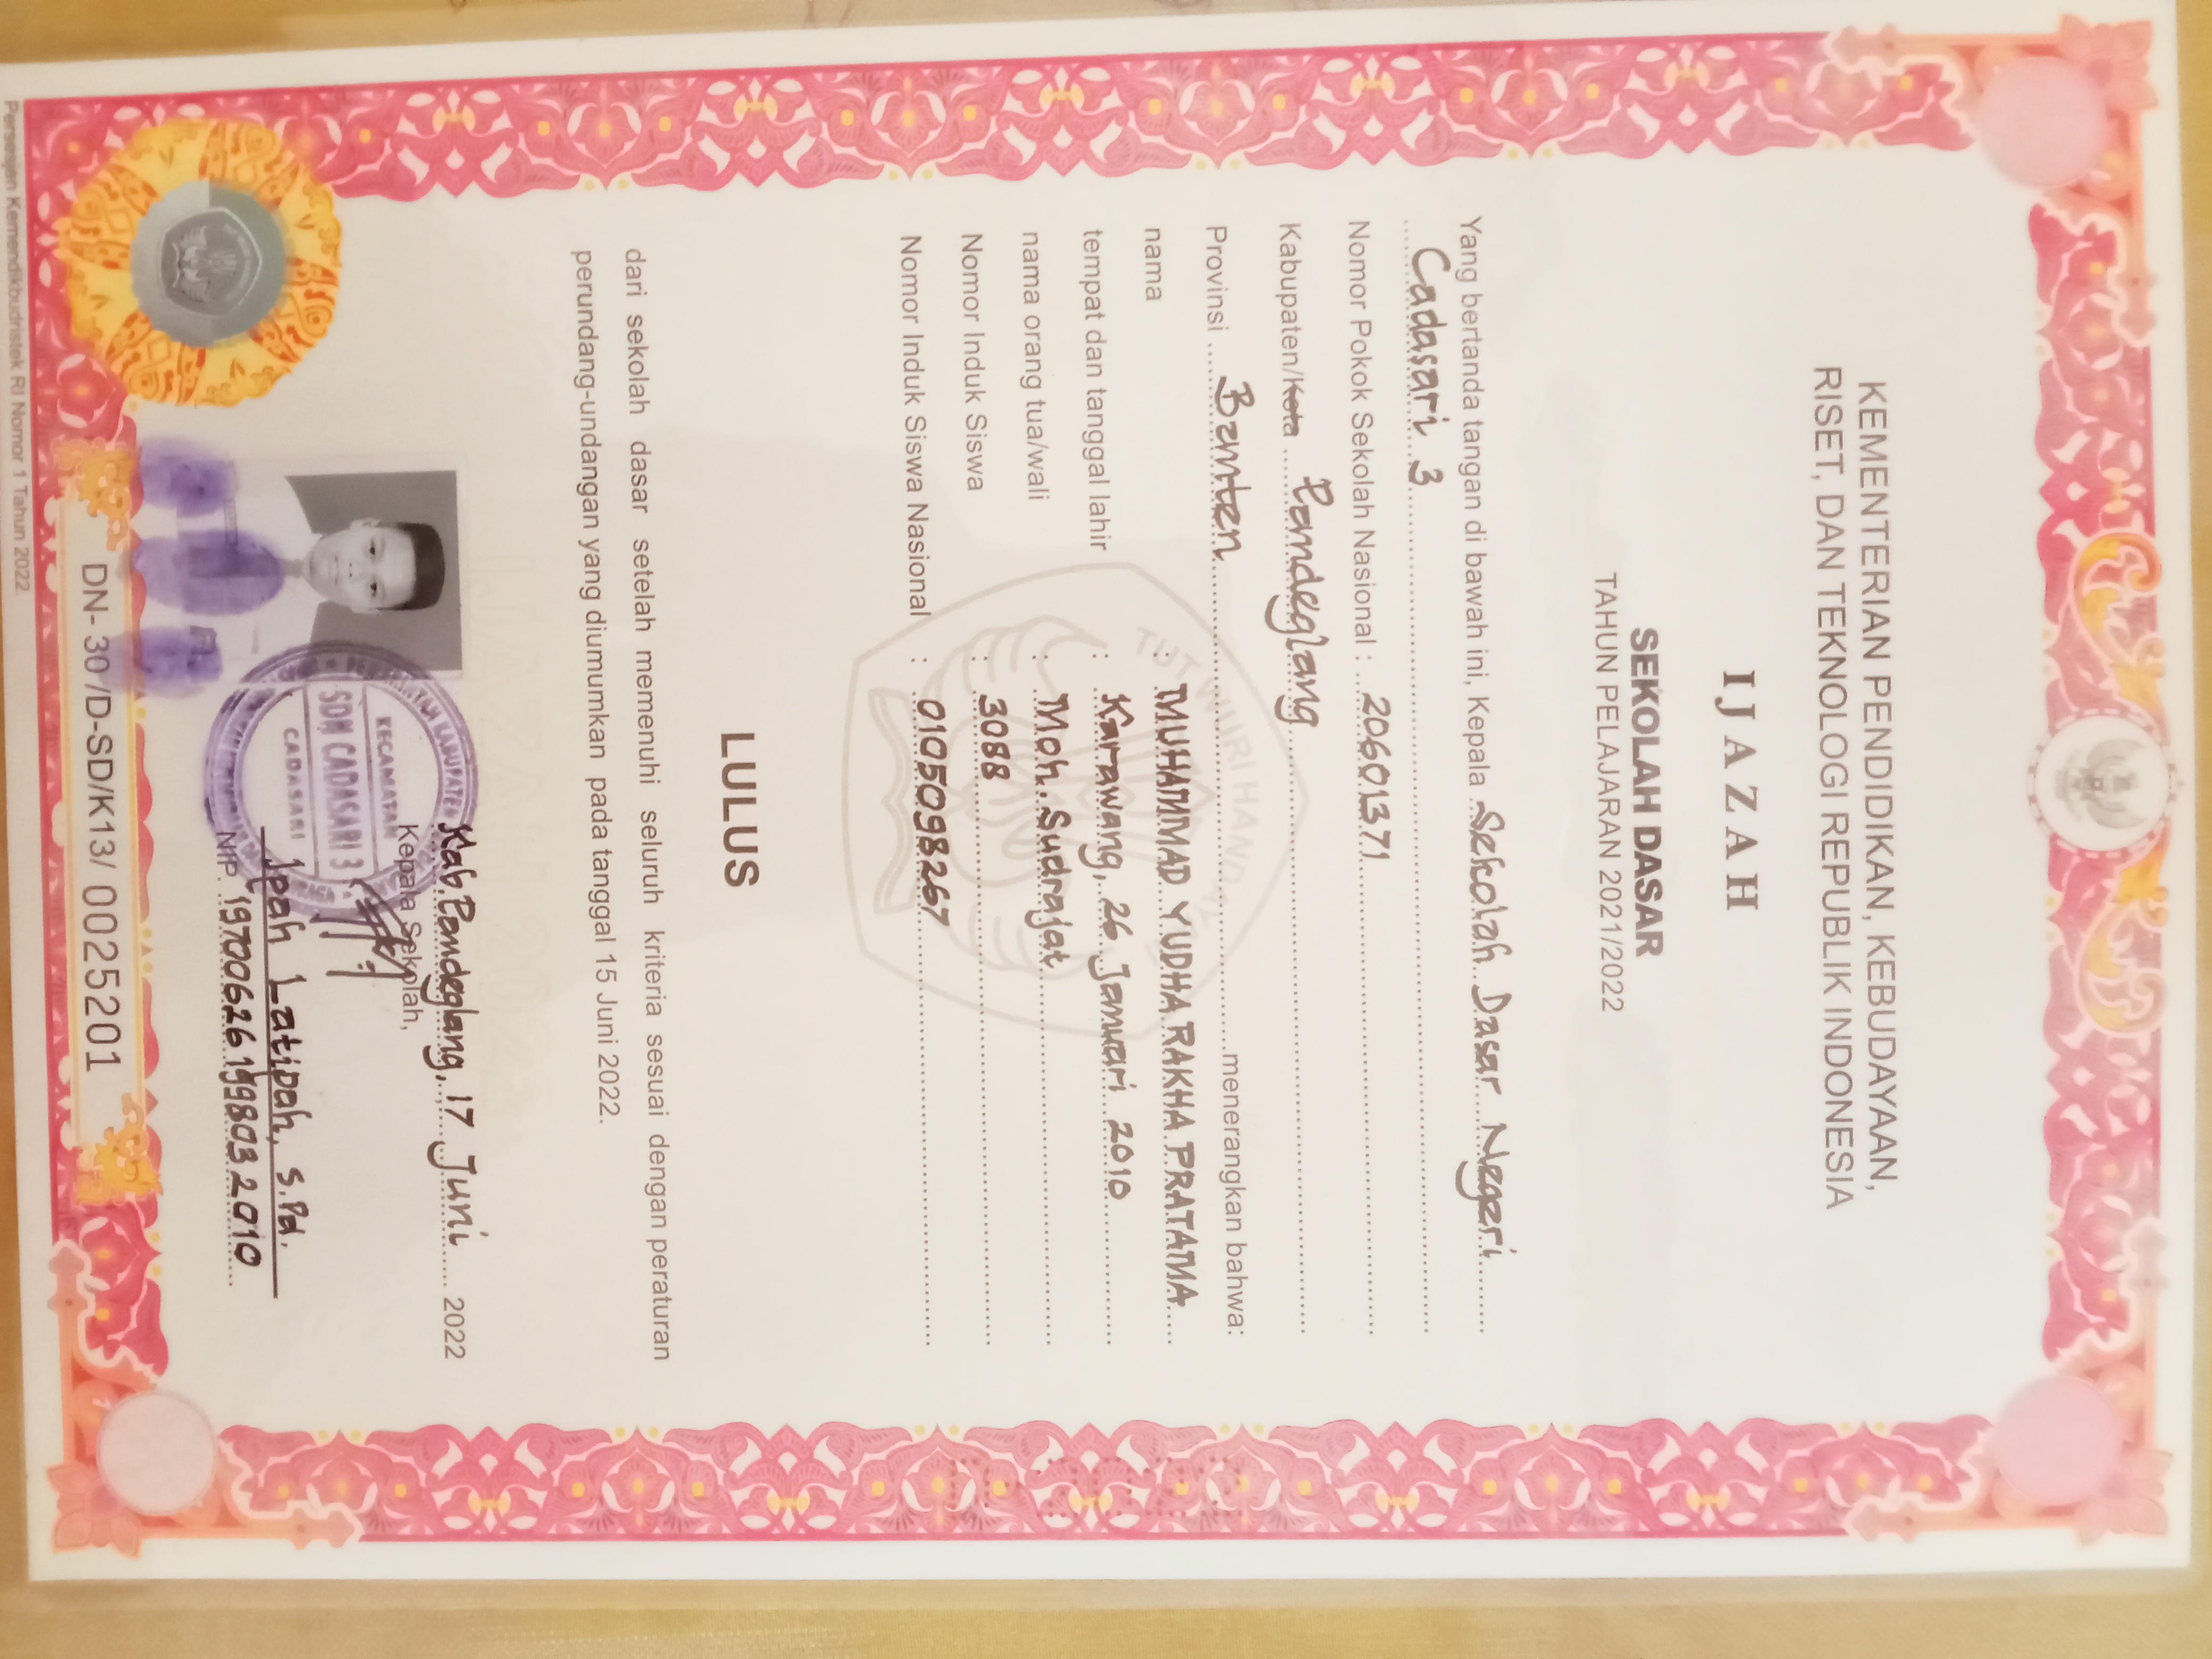 KEMENTERIAN PENDIDIKAN, KEBUDAYAAN,
RISET, DAN TEKNOLOGI REPUBLIK INDONESIA
IJAZAH
SEKOLAH DASAR
TAHUN PELAJARAN 2021/2022
Yang bertanda tangan di bawah ini, Kepala Sekolah Dasar Negeri
Cadasari 3
Nomor Pokok Sekolah Nasional : 20601371
Kabupaten/Kota Pandeglang
Provinsi Banten menerangkan bahwa:
nama : MUHAMMAD YUDHA RAKHA PRATAMA
tempat dan tanggal lahir : Karawang, 26 Januari 2010
nama orang tua/wali : Moh. Sudrajat
Nomor Induk Siswa : 3088
Nomor Induk Siswa Nasional : 0105098267
TUT WURI HANDAYANI
LULUS
dari sekolah dasar setelah memenuhi seluruh kriteria sesuai dengan peraturan
perundang-undangan yang diumumkan pada tanggal 15 Juni 2022.
Kab. Pandeglang, 17 Juni 2022
Kepala Sekolah,
KECAMATAN
SDN CADASARI 3
CADASARI
Ipah Latipah, S.Pd.
NIP. 19700626 199803 2 010
DN- 30 /D-SD/K13/ 0025201
Persesjen Kemendikbudristek RI Nomor 1 Tahun 2022